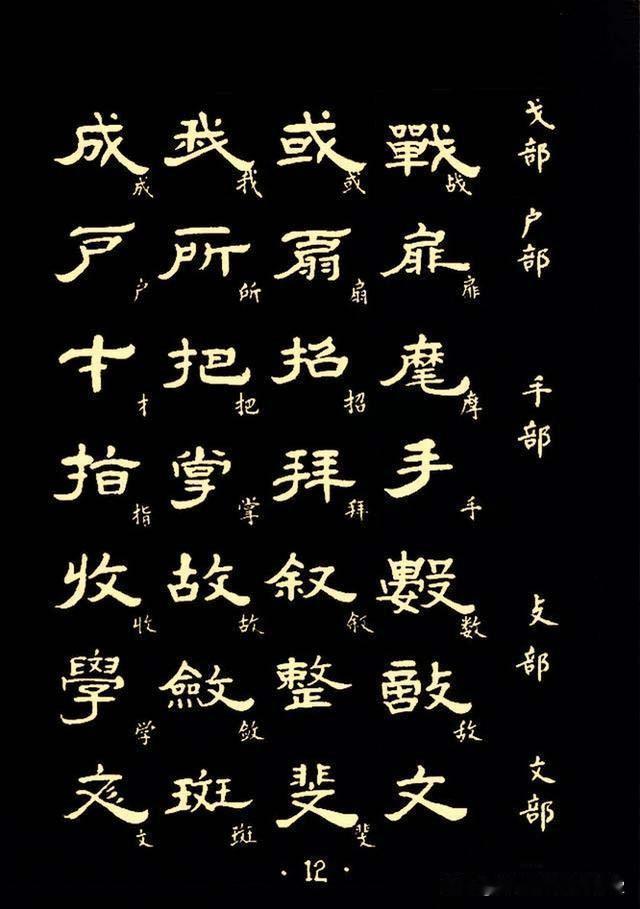 成 我 或 戰 戈部
成 我 或 战
户 所 扇 扉 户部
户 所 扇 扉
扌 把 招 摩 手部
扌 把 招 摩
指 掌 拜 手
指 掌 拜 手
收 故 叙 數 攴部
收 故 叙 数
學 斂 整 敵
学 敛 敌
文 斑 斐 文 文部
文 斑 斐
·12·